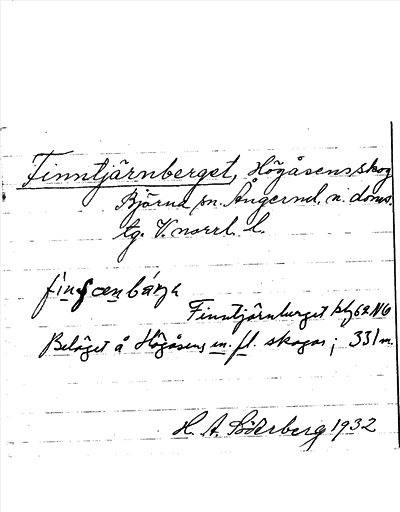 Finntjärnberget, Högåsens skog
Björna sn. Ångerml. n. doms.
tg. V. norrl. l.
Finntjärnberget blg 62 NG
Beläget å Högåsens m. fl. skogar; 331 m.
H. A. Söderberg 1932